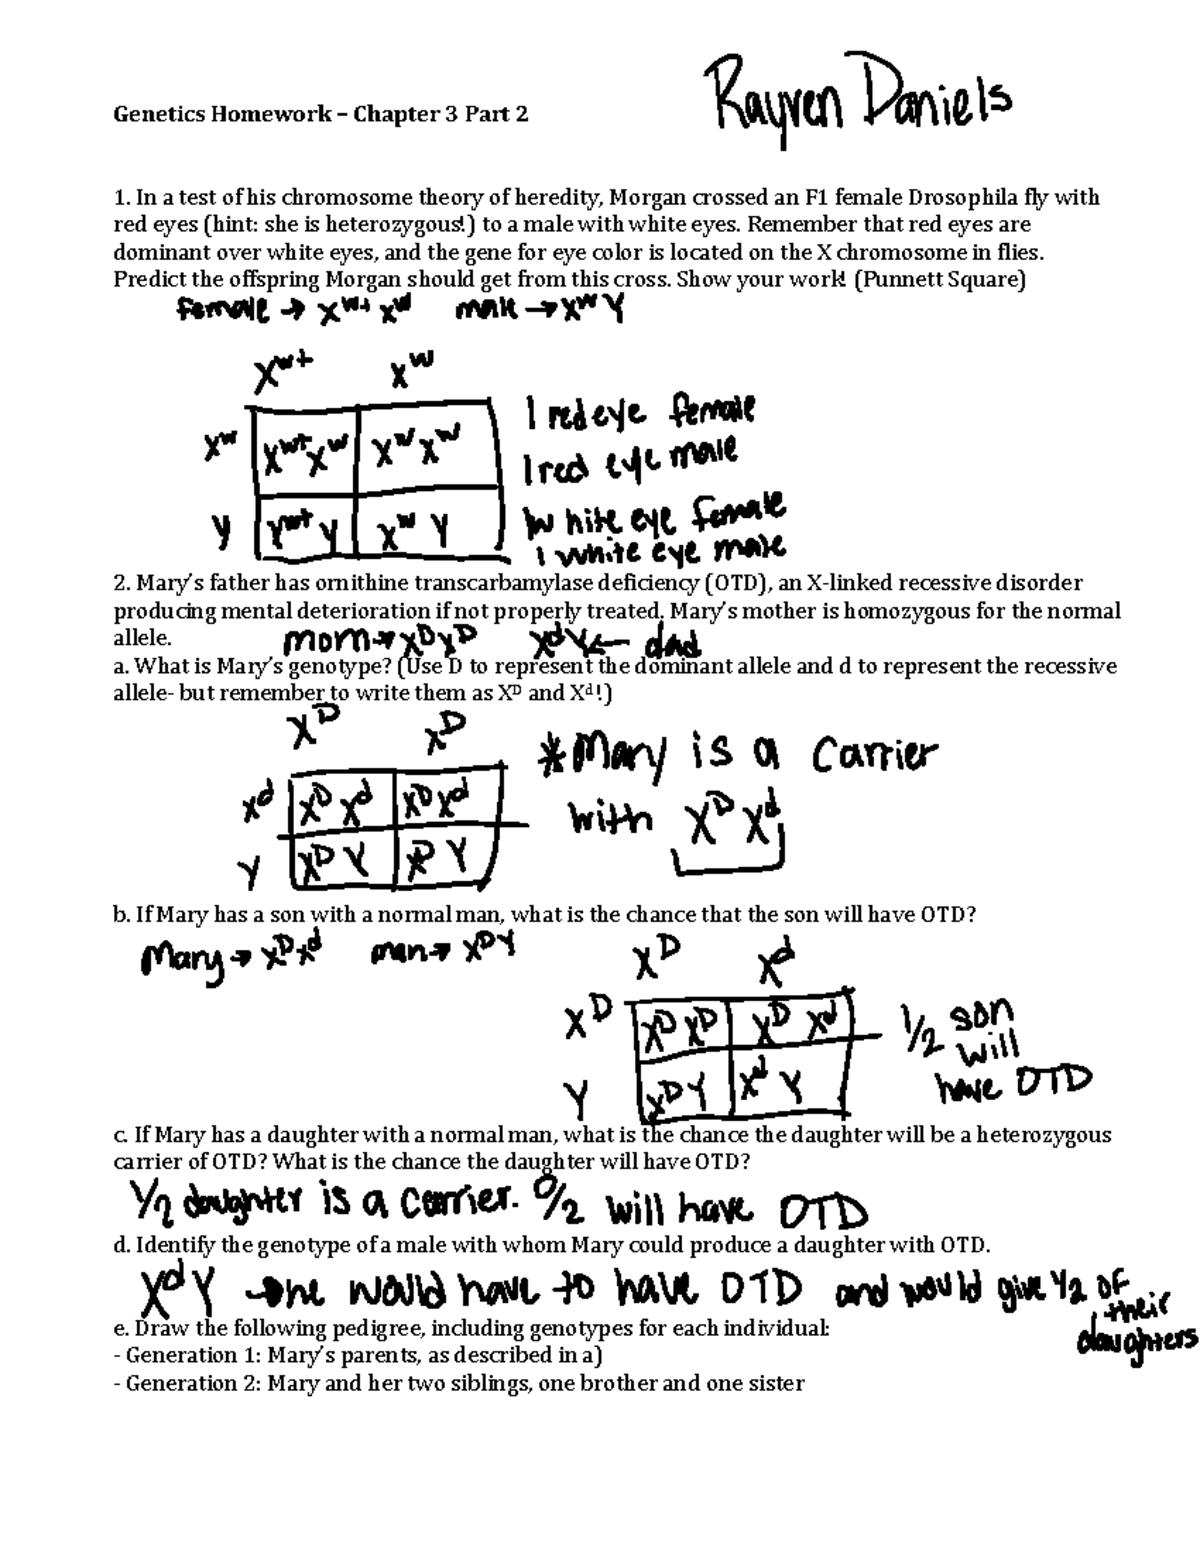 Rayven Daniels
Genetics Homework – Chapter 3 Part 2
1. In a test of his chromosome theory of heredity, Morgan crossed an F1 female Drosophila fly with
red eyes (hint: she is heterozygous!) to a male with white eyes. Remember that red eyes are
dominant over white eyes, and the gene for eye color is located on the X chromosome in flies.
Predict the offspring Morgan should get from this cross. Show your work! (Punnett Square)
female → Xʷ⁺ Xʷ male → Xʷ Y
Xʷ⁺ Xʷ
Xʷ Xʷ⁺Xʷ XʷXʷ
Y Xʷ⁺ Y Xʷ Y
1 red eye female
1 red eye male
1 white eye female
1 white eye male
2. Mary's father has ornithine transcarbamylase deficiency (OTD), an X-linked recessive disorder
producing mental deterioration if not properly treated. Mary's mother is homozygous for the normal
allele.
mom → XᴰXᴰ XᵈY ← dad
a. What is Mary's genotype? (Use D to represent the dominant allele and d to represent the recessive
allele- but remember to write them as Xᴰ and Xᵈ!)
Xᴰ Xᴰ
Xᵈ XᴰXᵈ XᴰXᵈ
Y XᴰY XᴰY
*Mary is a carrier
with XᴰXᵈ
b. If Mary has a son with a normal man, what is the chance that the son will have OTD?
Mary → XᴰXᵈ man → XᴰY
Xᴰ Xᵈ
Xᴰ XᴰXᴰ XᴰXᵈ
Y XᴰY XᵈY
1/2 son
will
have OTD
c. If Mary has a daughter with a normal man, what is the chance the daughter will be a heterozygous
carrier of OTD? What is the chance the daughter will have OTD?
1/2 daughter is a carrier. 0/2 will have OTD
d. Identify the genotype of a male with whom Mary could produce a daughter with OTD.
XᵈY → he would have to have OTD and would give 1/2 of
their
daughters
e. Draw the following pedigree, including genotypes for each individual:
- Generation 1: Mary's parents, as described in a)
- Generation 2: Mary and her two siblings, one brother and one sister